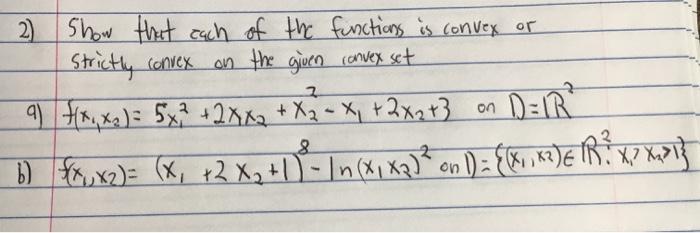 2) Show that each of the functions is convex or
strictly convex on the given convex set
a) f(x₁,x₂)= 5x₁² +2x₁x₂ + x₂² - x₁ +2x₂+3 on D=ℝ²
b) f(x₁,x₂)= (x₁ +2x₂+1)⁸ - ln(x₁x₂)² on D={(x₁,x₂)∈ ℝ²: x₁> x₂>1}